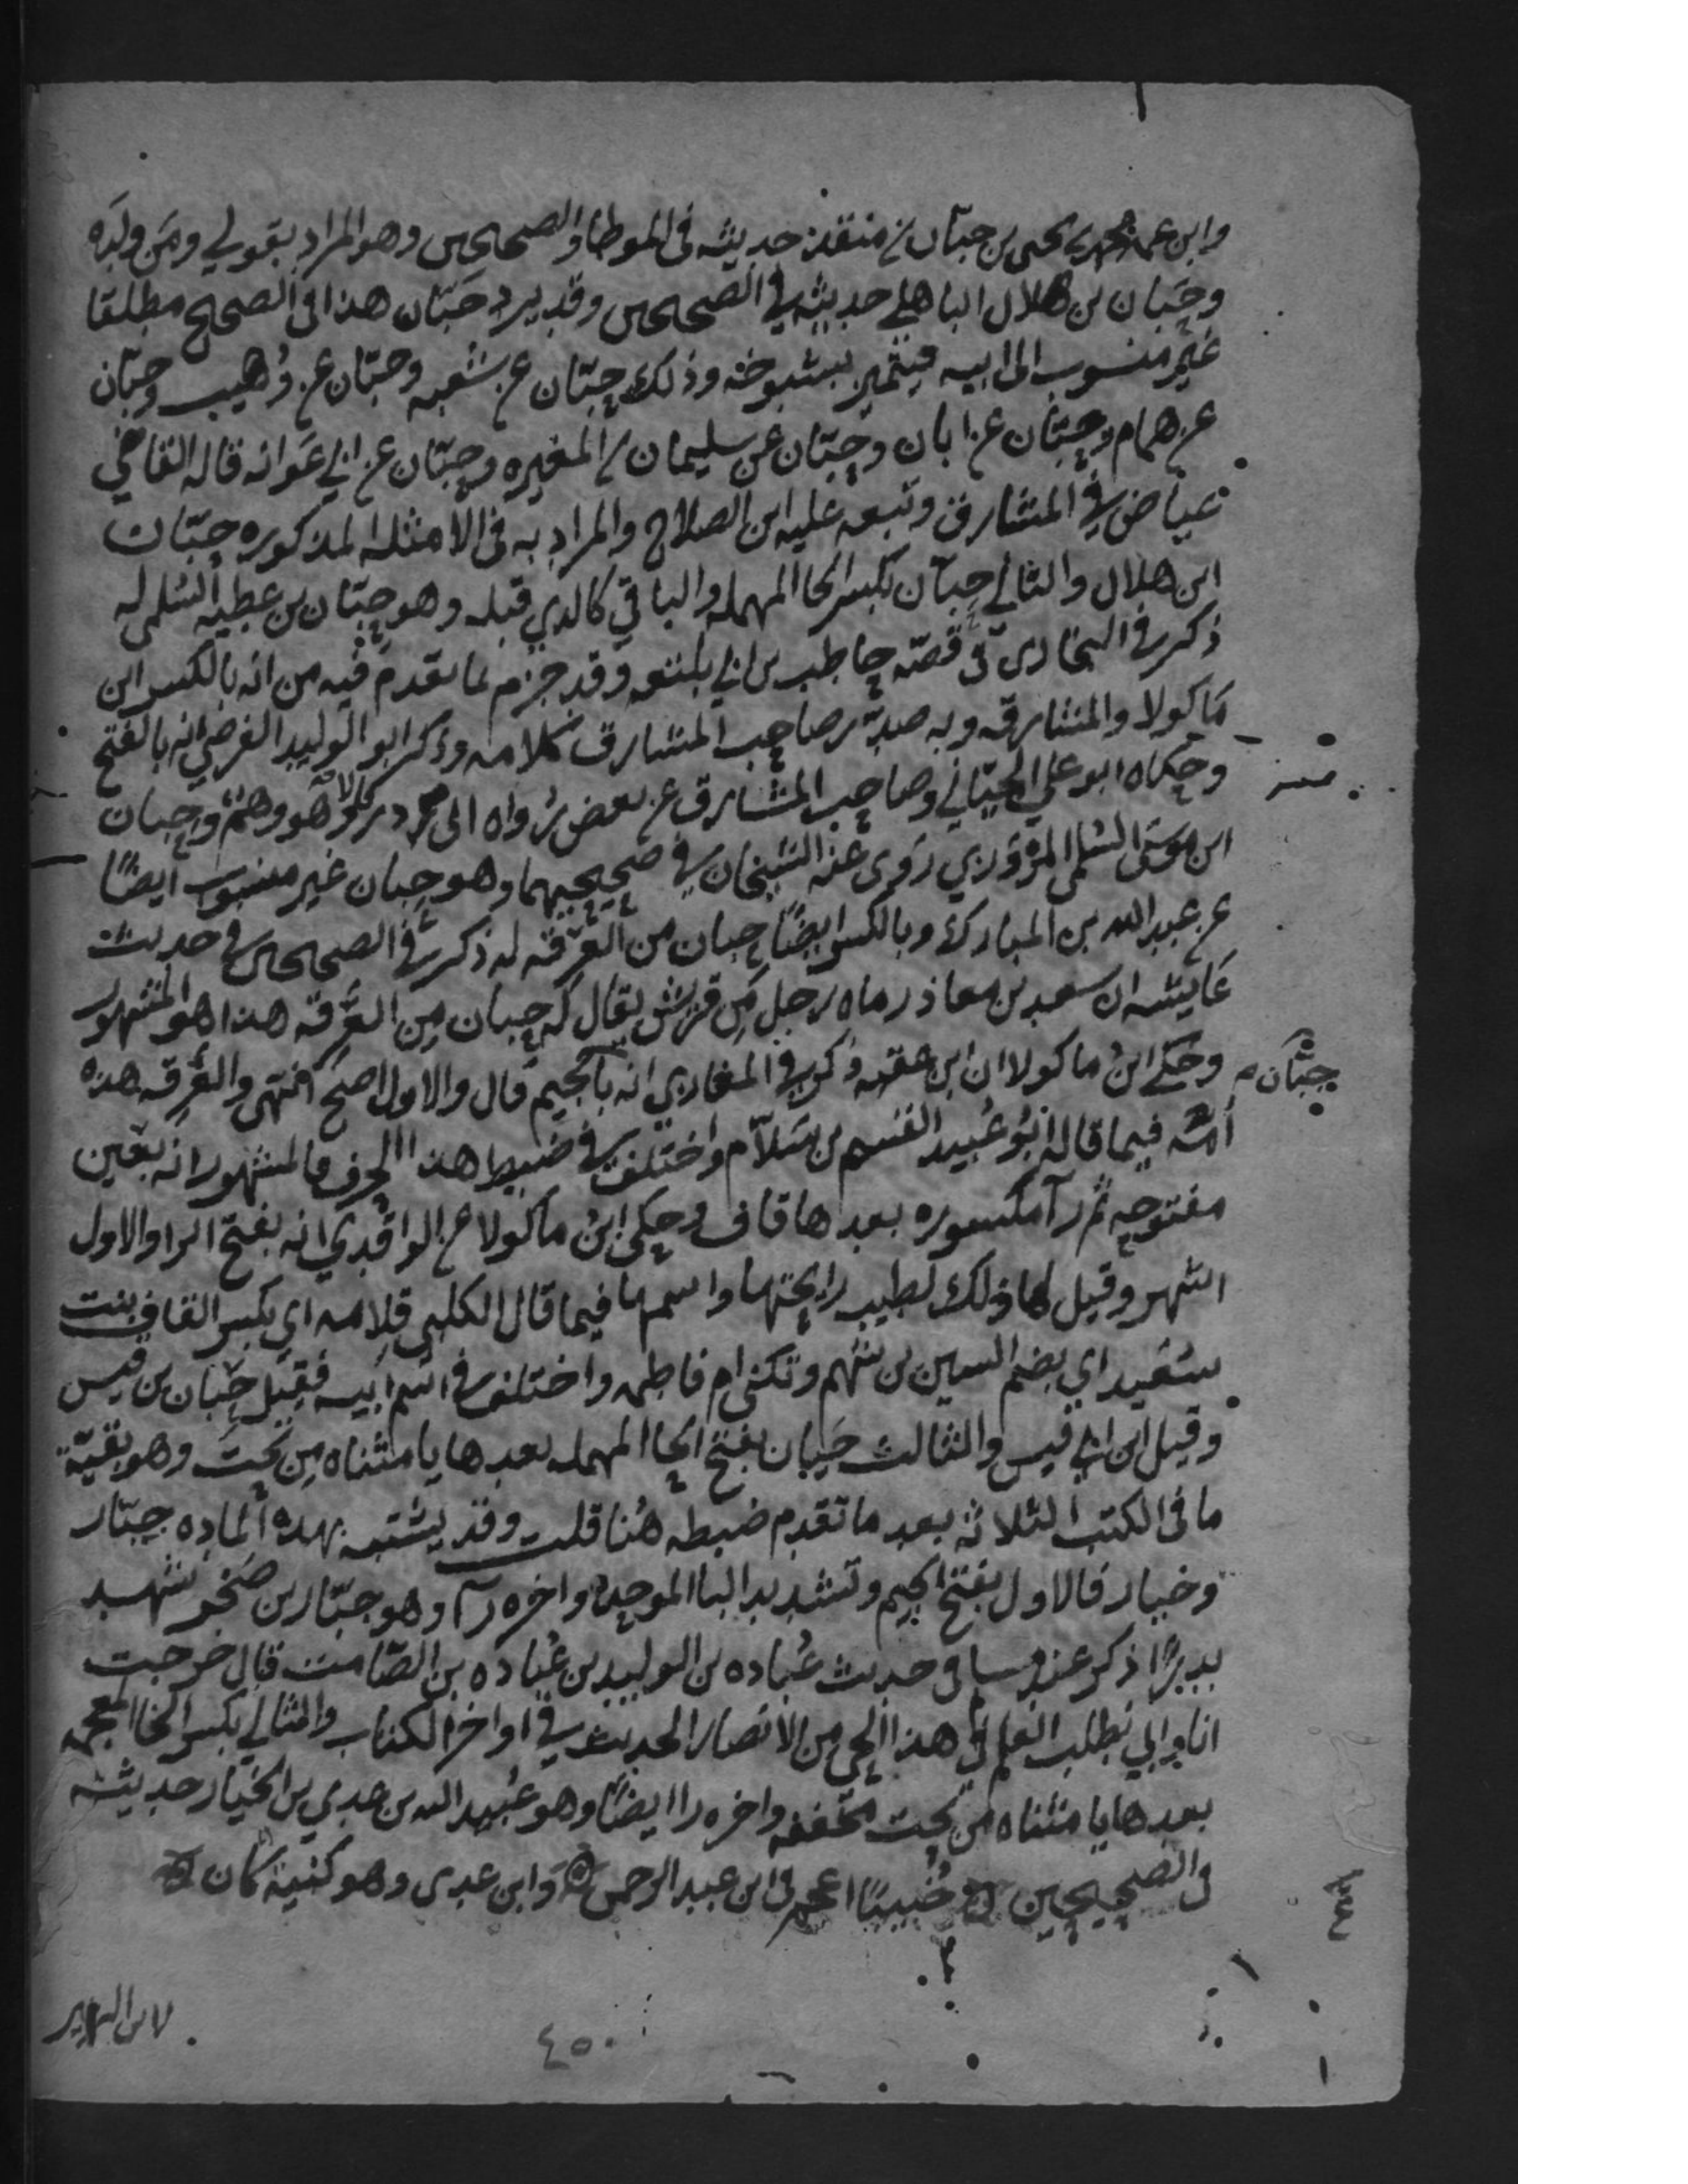 وابن عمه محمد بن يحيى بن حبّان بن منقذ حديثه في الموطا والصحيحين وهو المراد بقولي ومن ولده
وحَبّان بن هلال الباهلي حديثه في الصحيحين وقد يرد حَبّان هذا في الصحيح مطلقا
غير منسوب الى ابيه فيتميز بشيوخه وذلك حبّان عن شعبه وحبّان عن وُهيب وحبّان
عن همام وحبّان عن ابان وحبّان عن سليمان بن المغيره وحبّان عن ابي عَوانه قاله القاضي
عياض في المشارق وتبعه عليه ابن الصلاح والمراد به في الامثله المذكوره حبّان
ابن هلال والثاني حِبّان بكسر الحا المهمله والباقي كالذي قبله وهو حبّان بن عطيه السُلمى له
ذكر في البخارى في قصّه حاطب بن ابي بلتعه وقد جزم لما تقدم فيه من انه بالكسر ابن
ماكولا والمشارقه وبه صدّر صاحب المشارق كلامه وذكر ابو الوليد الفرضي انه بالفتح
وحكاه ابو علي الجيّاني وصاحب المشارق عن بعض رواه ابى ذر قالا وهو وهَم وحِبان
ابن موسى السُلمى المروزي روى عنه الشيخان في صحيحيهما وهو حِبان غير منسوب ايضًا
عن عبد الله بن المبارك وبالكسر ايضًا حبان من العَرِقه له ذكر في الصحيحين في حديث
عايشه ان سعد بن معاذ رماه رجل من قريش يقال له حِبان من العَرِقه هذا هو المشهور
وحكى ابنُ ماكولا ان ابن عقبه ذكر في المغازي انه بالجيم قال والاول اصح انتهى والعَرِقه هذه
حبّان م
اُمّه فيما قاله ابُو عُبيد القسم بن سَلاّم واختلف في ضبط هذا الحرف فالمشهور انه بعين
مفتوحه ثم رآ مكسوره بعدها قاف وحكى ابنُ ماكولا عن الواقدي انه بفتح الرا والاول
اشهر وقيل لها ذلك لطيب رايحتها واسمها فيما قال الكلبي قِلابه اي بكسر القاف بنت
سُعَيد اي بضم السين بن سَهم وتكنى ام فاطمه واختلف في اسم ابيه فقيل حِبّان بن قيس
وقيل ابن ابي قيس والثالث حَيان بفتح الحا المهمله بعدها يا مثناه من تحت وهو بقيّة
ما في الكتب الثلاثه بعد ما تقدم ضبطه هُنا قلت وقد يشتبه بهذه الماده جبّار
وخيار فالاول بفتح الجيم وتشديد البا الموحدة واخره رآ وهو جبّار بن صَخر شهد
بدرًا ذكر عند مسلم في حديث عُباده بن الوليد بن عُباده بن الصّامت قال خرجت
انا وابي نطلب العلم في هذا الحي من الانصار الحديث في اواخر الكتاب والثاني بكسر الخا المعجمه
بعدها يا مثناه من تحت مخففه واخره را ايضًا وهو عُبيد الله بن عدي بن الخيار حديثه
في الصحيحين خُبيبًا اعجم في ابن عبد الرحمن وابن عدى وهو كنيةً كان
لابن الزبير
٤٥٠